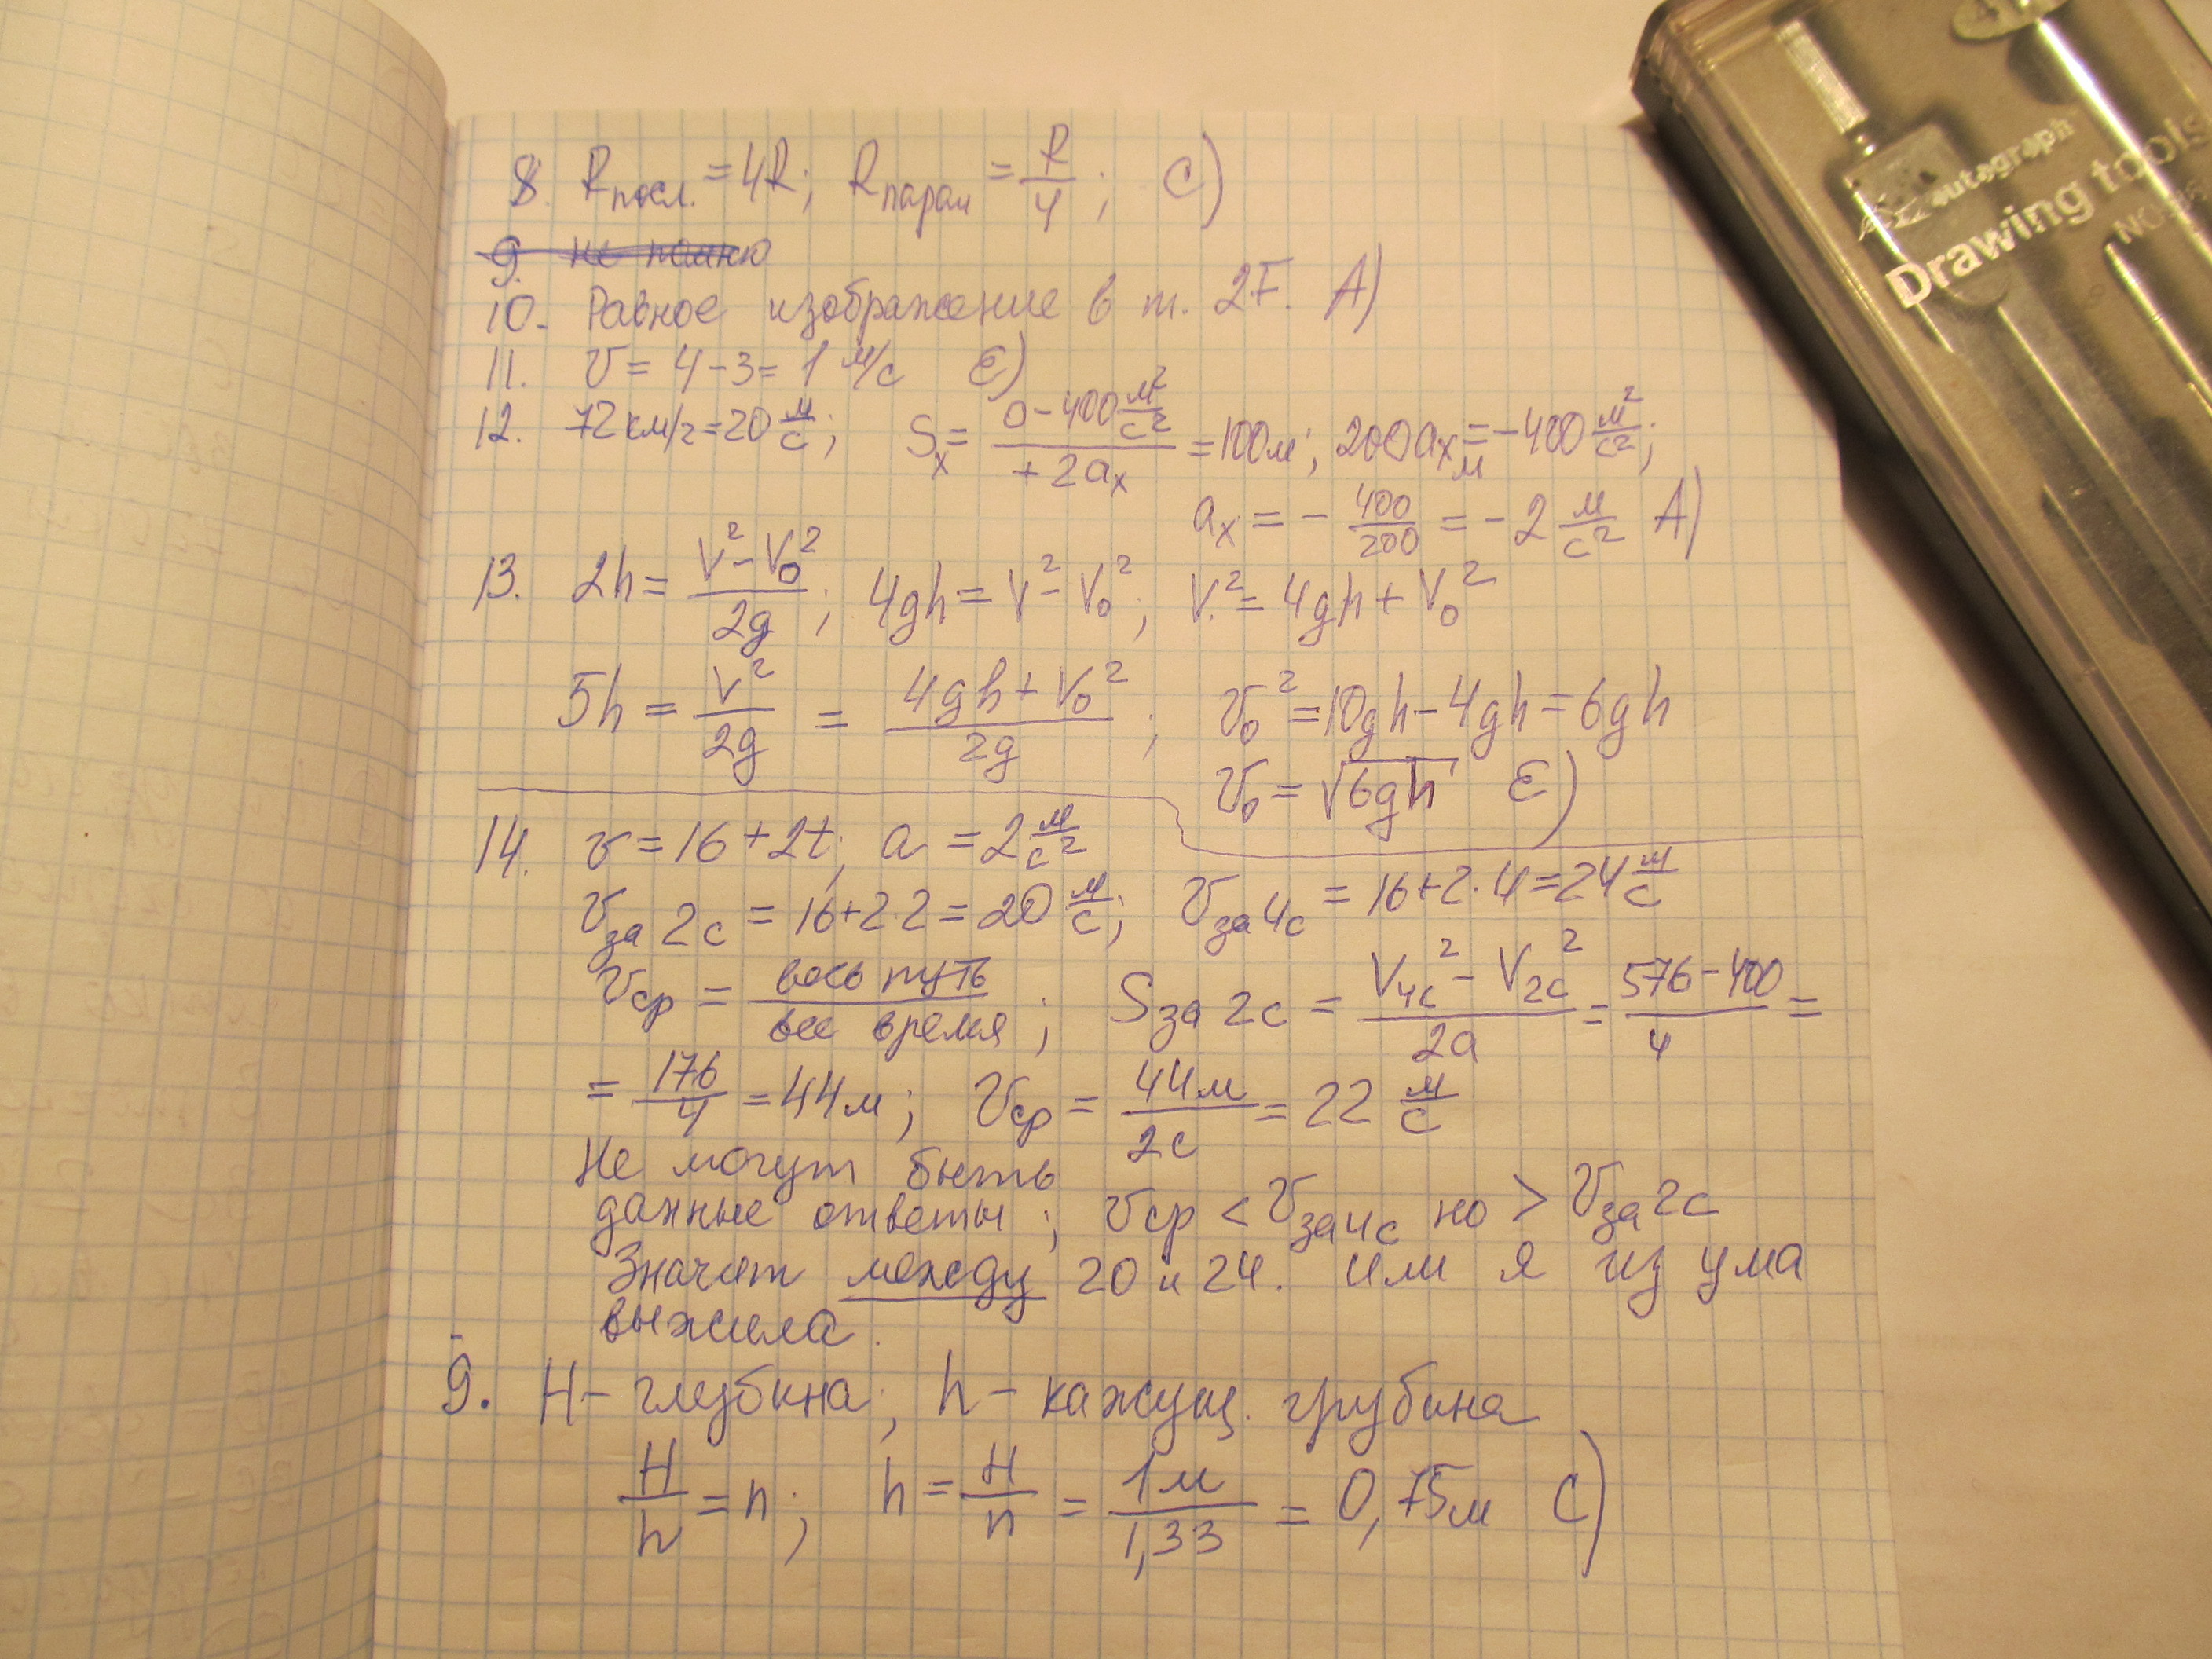 8. Rпосл. = 4R; Rпарал = R/4; C)
9. не помню
10. Равное изображение в т. 2F. A)
11. v = 4 - 3 = 1 м/с E)
12. 72 км/г = 20 м/с; Sx = (0 - 400 м²/с²)/(+2ax) = 100м; 200ax м = -400 м²/с²;
ax = - 400/200 = -2 м/с² A)
13. 2h = (V² - V₀²)/2g; 4gh = V² - V₀²; V² = 4gh + V₀²
5h = V²/2g = (4gh + V₀²)/2g; v₀² = 10gh - 4gh = 6gh
v₀ = √6gh E)
14. v = 16 + 2t; a = 2 м/с²
vза 2с = 16 + 2·2 = 20 м/с; vза 4с = 16 + 2·4 = 24 м/с
vср = весь путь/все время; Sза 2с = (V4с² - V2с²)/2a = (576 - 400)/4 =
= 176/4 = 44м; vср = 44м/2с = 22 м/с
Не могут быть
данные ответы; vср < vза 4с но > vза 2с
Значит между 20 и 24. Или я из ума
выжила.
9. H - глубина; h - кажущ. грубина
H/h = n; h = H/n = 1м/1,33 = 0,75м C)
autograph
Drawing tools